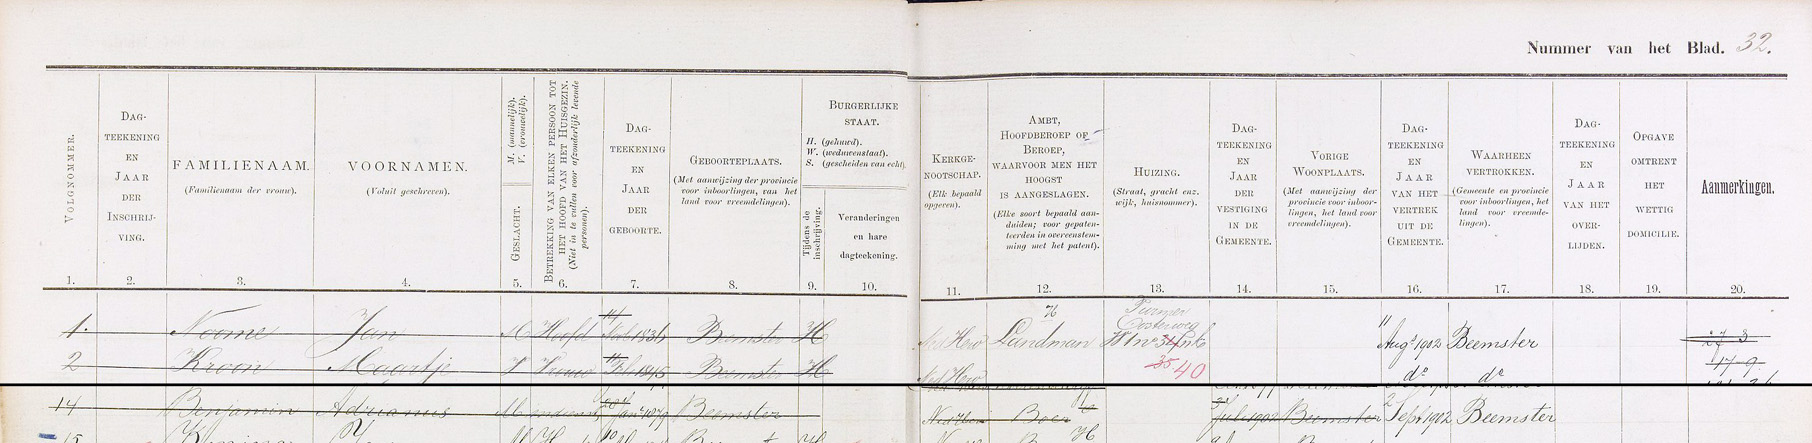 Nummer van het Blad. 32.
VOLGNOMMER.
DAG-
TEEKENING
EN
JAAR
DER
INSCHRIJ-
VING.
FAMILIENAAM.
(Familienaam der vrouw).
VOORNAMEN.
(Voluit geschreven).
GESLACHT.
M. (mannelijk).
V. (vrouwelijk).
BETREKKING VAN ELKEN PERSOON TOT
HET HOOFD VAN HET HUISGEZIN.
(Niet in te vullen voor afzonderlijk levende
personen).
DAG-
TEEKENING
EN
JAAR
DER
GEBOORTE.
GEBOORTEPLAATS.
(Met aanwijzing der provincie
voor inboorlingen, van het
land voor vreemdelingen).
BURGERLIJKE
STAAT.
H. (gehuwd).
W. (weduwenstaat).
S. (gescheiden van echt).
Tijdens de
inschrijving.
Veranderingen
en hare
dagteekening.
KERKGE-
NOOTSCHAP.
(Elk bepaald
opgeven).
AMBT,
HOOFDBEROEP OF
BEROEP,
WAARVOOR MEN HET
HOOGST
IS AANGESLAGEN.
(Elke soort bepaald aan-
duiden; voor gepaten-
teerden in overeenstem-
ming met het patent).
HUIZING.
(Straat, gracht enz.
wijk, huisnommer).
DAG-
TEEKENING
EN
JAAR
DER
VESTIGING
IN DE
GEMEENTE.
VORIGE
WOONPLAATS.
(Met aanwijzing der
provincie voor inboor-
lingen, het land voor
vreemdelingen).
DAG-
TEEKENING
EN
JAAR
VAN HET
VERTREK
UIT DE
GEMEENTE.
WAARHEEN
VERTROKKEN.
(Gemeente en provincie
voor inboorlingen, het
land voor vreemde-
lingen).
DAG-
TEEKENING
EN
JAAR
VAN HET
OVER-
LIJDEN.
OPGAVE
OMTRENT
HET
WETTIG
DOMICILIE.
Aanmerkingen.
1. 2. 3. 4. 5. 6. 7. 8. 9. 10. 11. 12. 13. 14. 15. 16. 17. 18. 19. 20.
1. Noome Jan M Hoofd 14 1836 Beemster H Ned Herv Landman H Purmer Oosterweg 11 Aug 1902 Beemster 27 3
2 Kroon Maartje V Vrouw Beemster H Ned Herv 35 40 do do 17 9
14 Benjamin Adrianus M Beemster Boer Juli 1902 Beemster 2 Sept 1902 Beemster
15